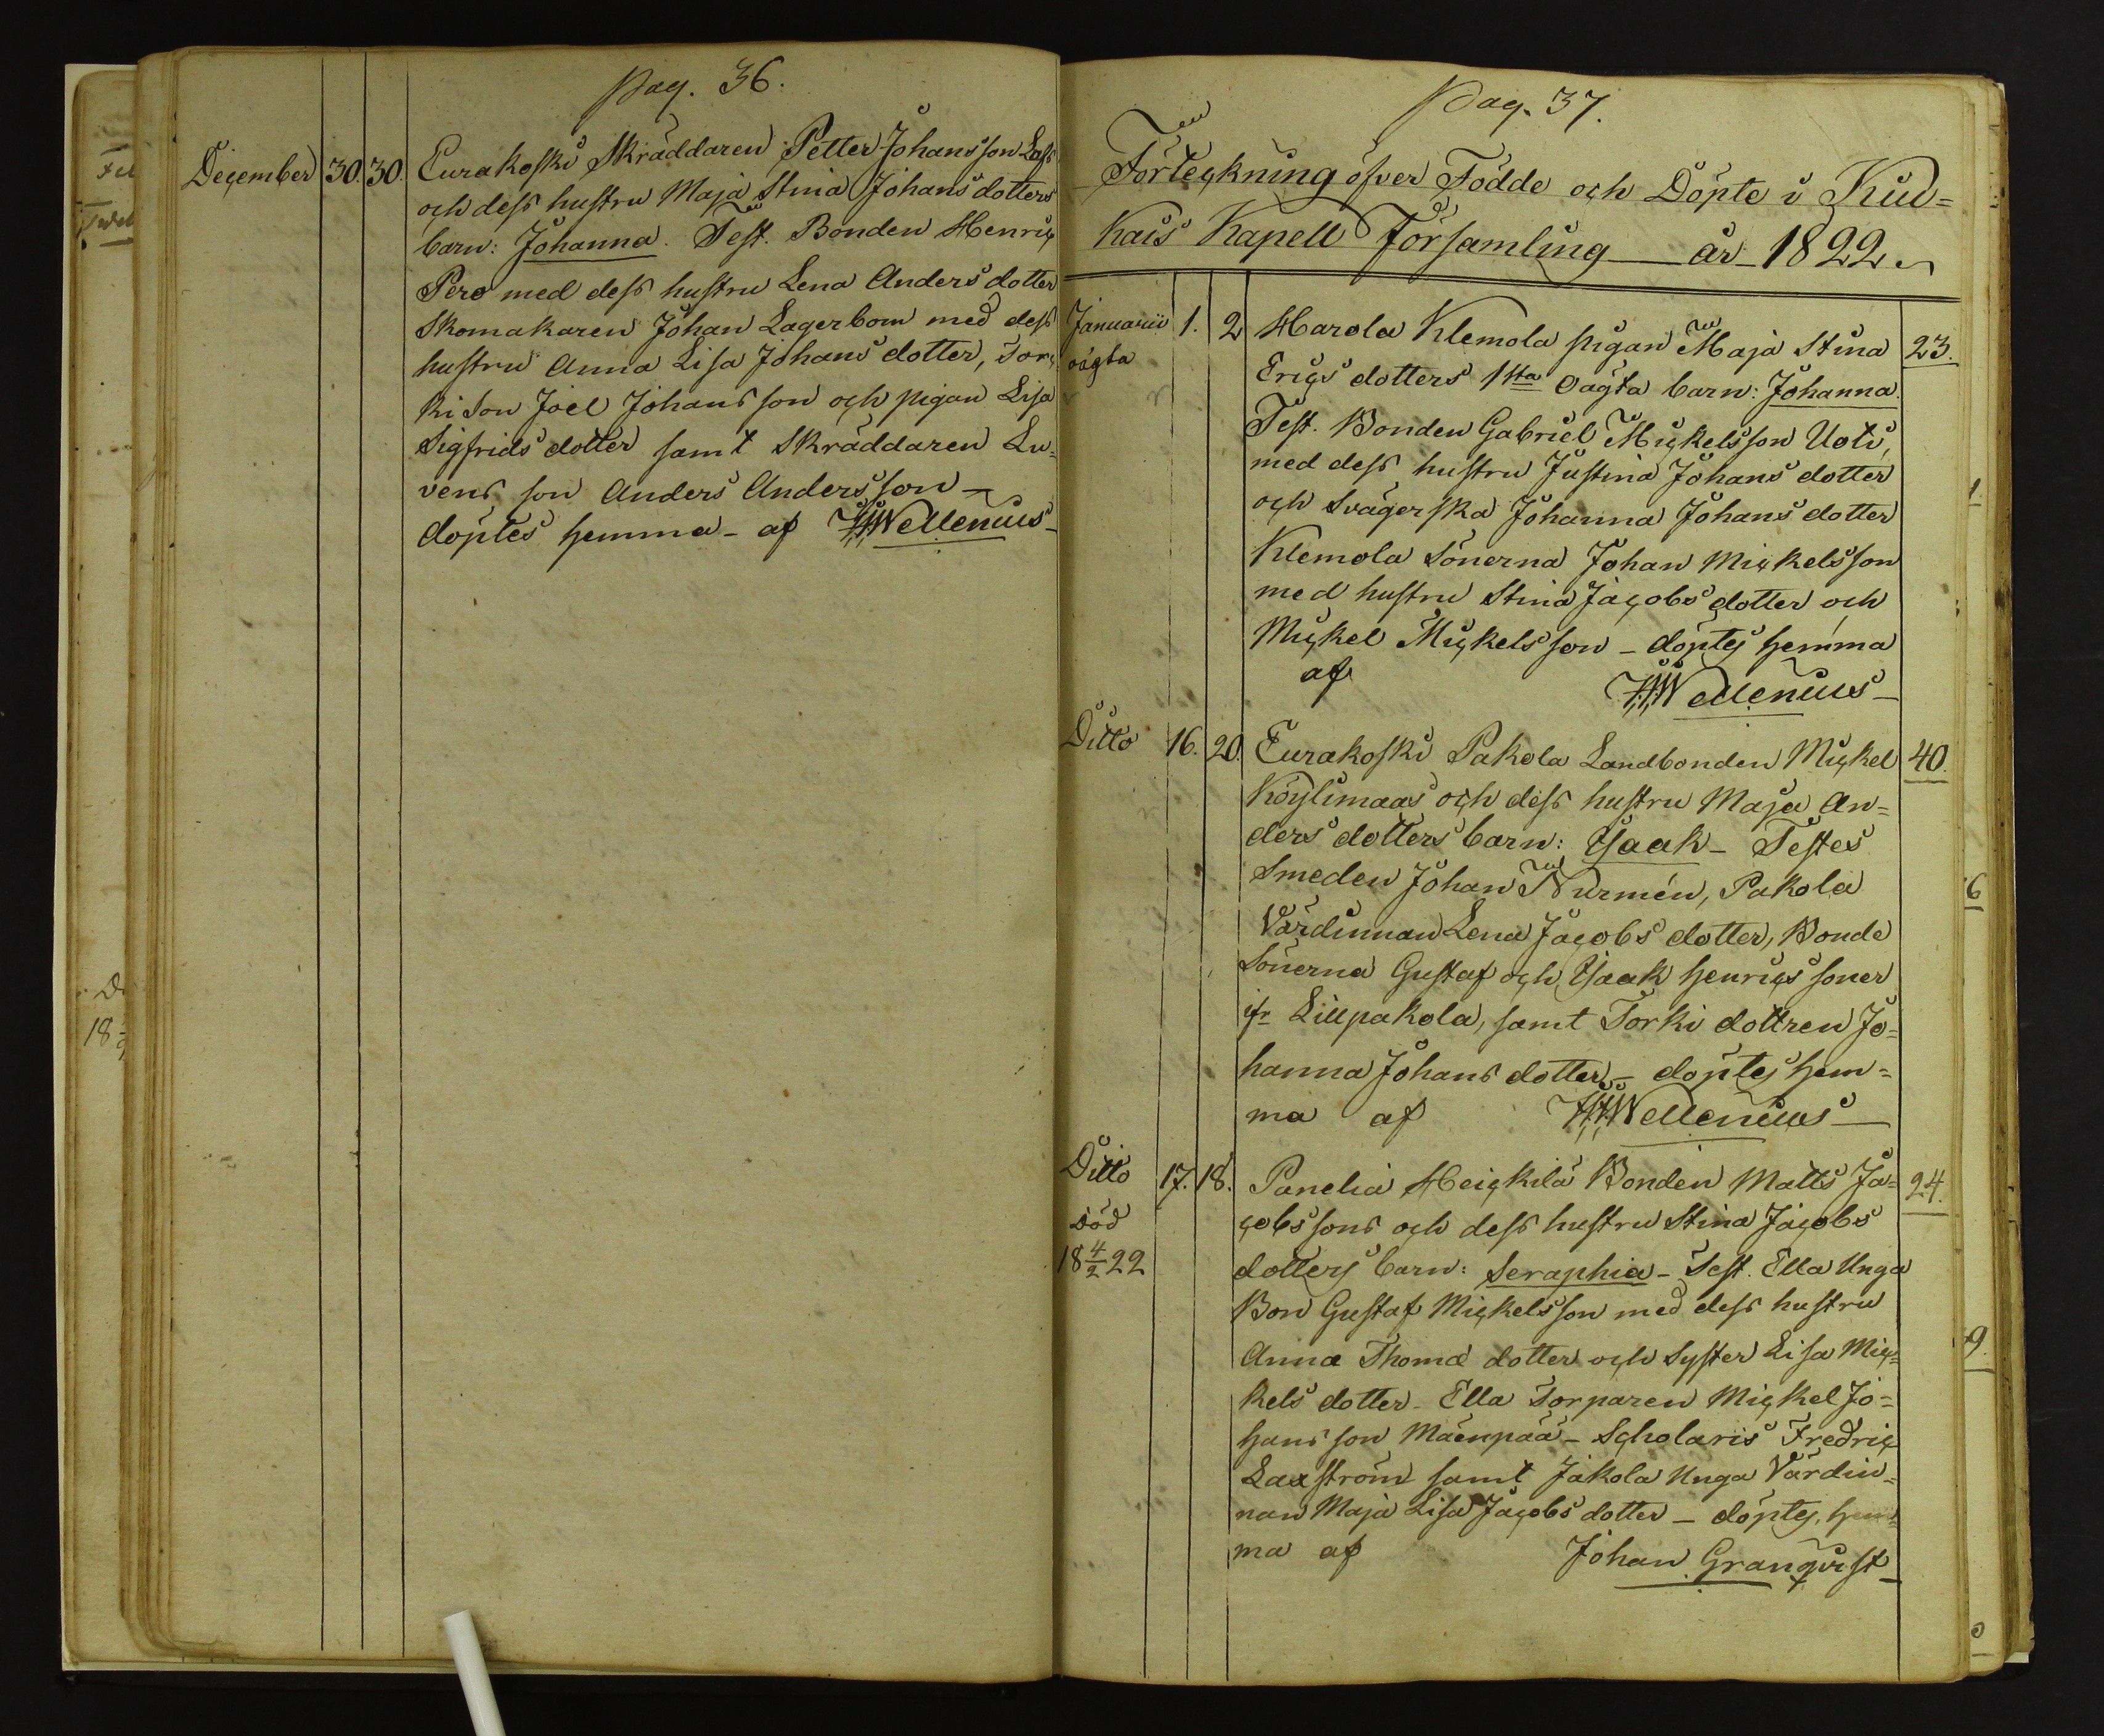 Pag. 36.
December 30. 30. Eurakoski Skräddaren Petter Johansson Lass
och dess hustru Maja Stina Johans dotters
barn: Johanna. Test. Bonden Henric
Pero med dess hustru Lena Anders dotter
Skomakaren Johan Lagerbom med dess
hustru Anna Lisa Johans dotter, Tor-
ki Son Joel Johans son och pigan Lisa
Sigfrids dotter samt Skräddaren Lu-
vens son Anders Andersson –
döptes hemma – af HHWellenius –
Pag. 37.
Förteckning öfver Födde och Döpte i Kiu=
kais Kapell Församling – år 1822.
Januarii 1. 2 Harola Klemola pigan Maja Stina 23.
oägta Erics dotters 1sta oägta barn: Johanna.
Test. Bonden Gabriel Mickelsson Uoti,
med dess hustru Justina Johans dotter
och Svägerska Johanna Johans dotter
Klemola Sönerna Johan Mickelsson
med hustru Stina Jacobs dotter och
Mickel Mickelsson – döptes hemma
af HHWellenius –
Ditto 16. 20. Eurakoski Pakola Landbonden Mickel 40.
Köylimaas och dess hustru Maja An=
ders dotters barn: Isaak – Testes
Smeden Johan Nurmén, Pakola
Värdinnan Lena Jacobs dotter, Bonde
Sönerna Gustaf och Isaak Henrics soner
ifr Lillpakola, samt Torki dottren Jo=
hanna Johans dotter – döptes hem=
ma af HHWellenius –
Ditto 17. 18. Panelia Heickilä Bonden Matts Ja= 24.
död cobssons och dess hustru Stina Jacobs
18 4/2 22 dotters barn: Seraphia – Test. Ella Unga
Bon Gustaf Mickelsson med dess hustru
Anna Thomæ dotter och Syster Lisa Mic=
kels dotter – Ella Torparen Mickel Jo=
hans son Mäenpää – Scholaris Fredric
Laxström samt Jakola Unga Värdin=
nan Maja Lisa Jacobs dotter – döptes hem=
ma af Johan Granqvist –